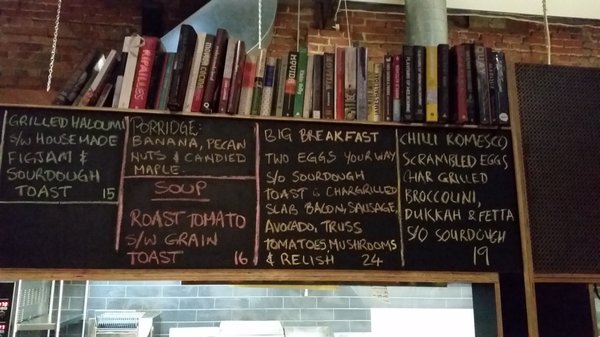 GRILLED HALOUMI
S/W HOUSEMADE
FIGJAM &
SOURDOUGH
TOAST 15
PORRIDGE:
BANANA, PECAN
NUTS & CANDIED
MAPLE.
SOUP
ROAST TOMATO
S/W GRAIN
TOAST 16
BIG BREAKFAST
TWO EGGS YOUR WAY
S/O SOURDOUGH
TOAST & CHARGRILLED
SLAB BACON, SAUSAGE,
AVOCADO, TRUSS
TOMATOES MUSHROOMS
& RELISH 24
CHILLI ROMESCO
SCRAMBLED EGGS
CHAR GRILLED
BROCCOLINI,
DUKKAH & FETTA
S/O SOURDOUGH
19